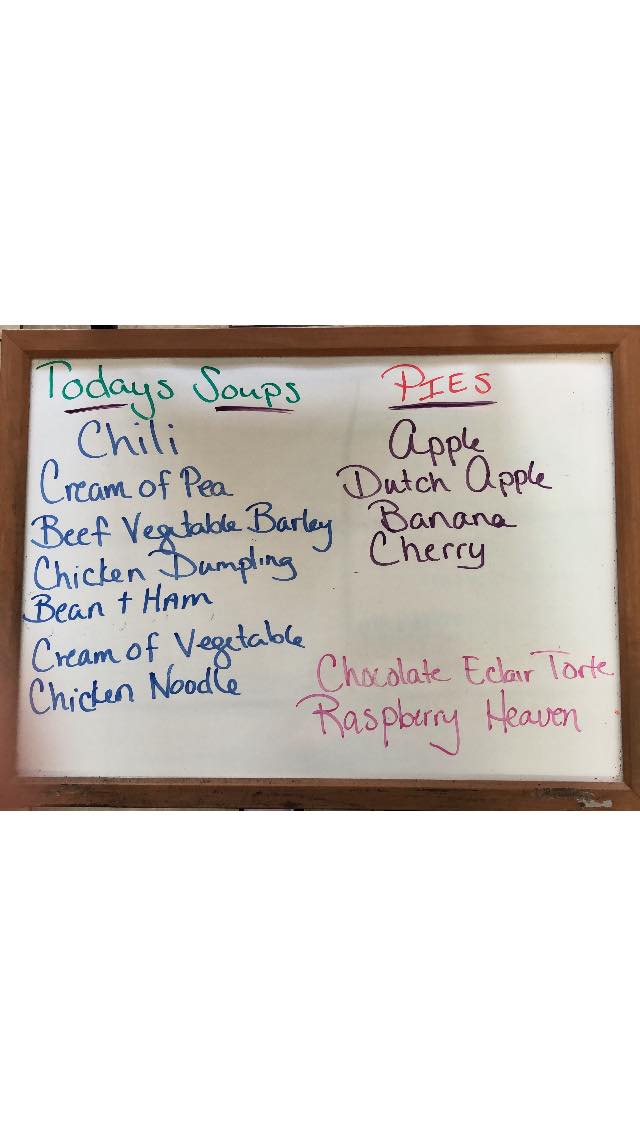 Todays Soups
Chili
Cream of Pea
Beef Vegetable Barley
Chicken Dumpling
Bean + HAM
Cream of Vegetable
Chicken Noodle
PIES
Apple
Dutch Apple
Banana
Cherry
Chocolate Eclair Torte
Raspberry Heaven